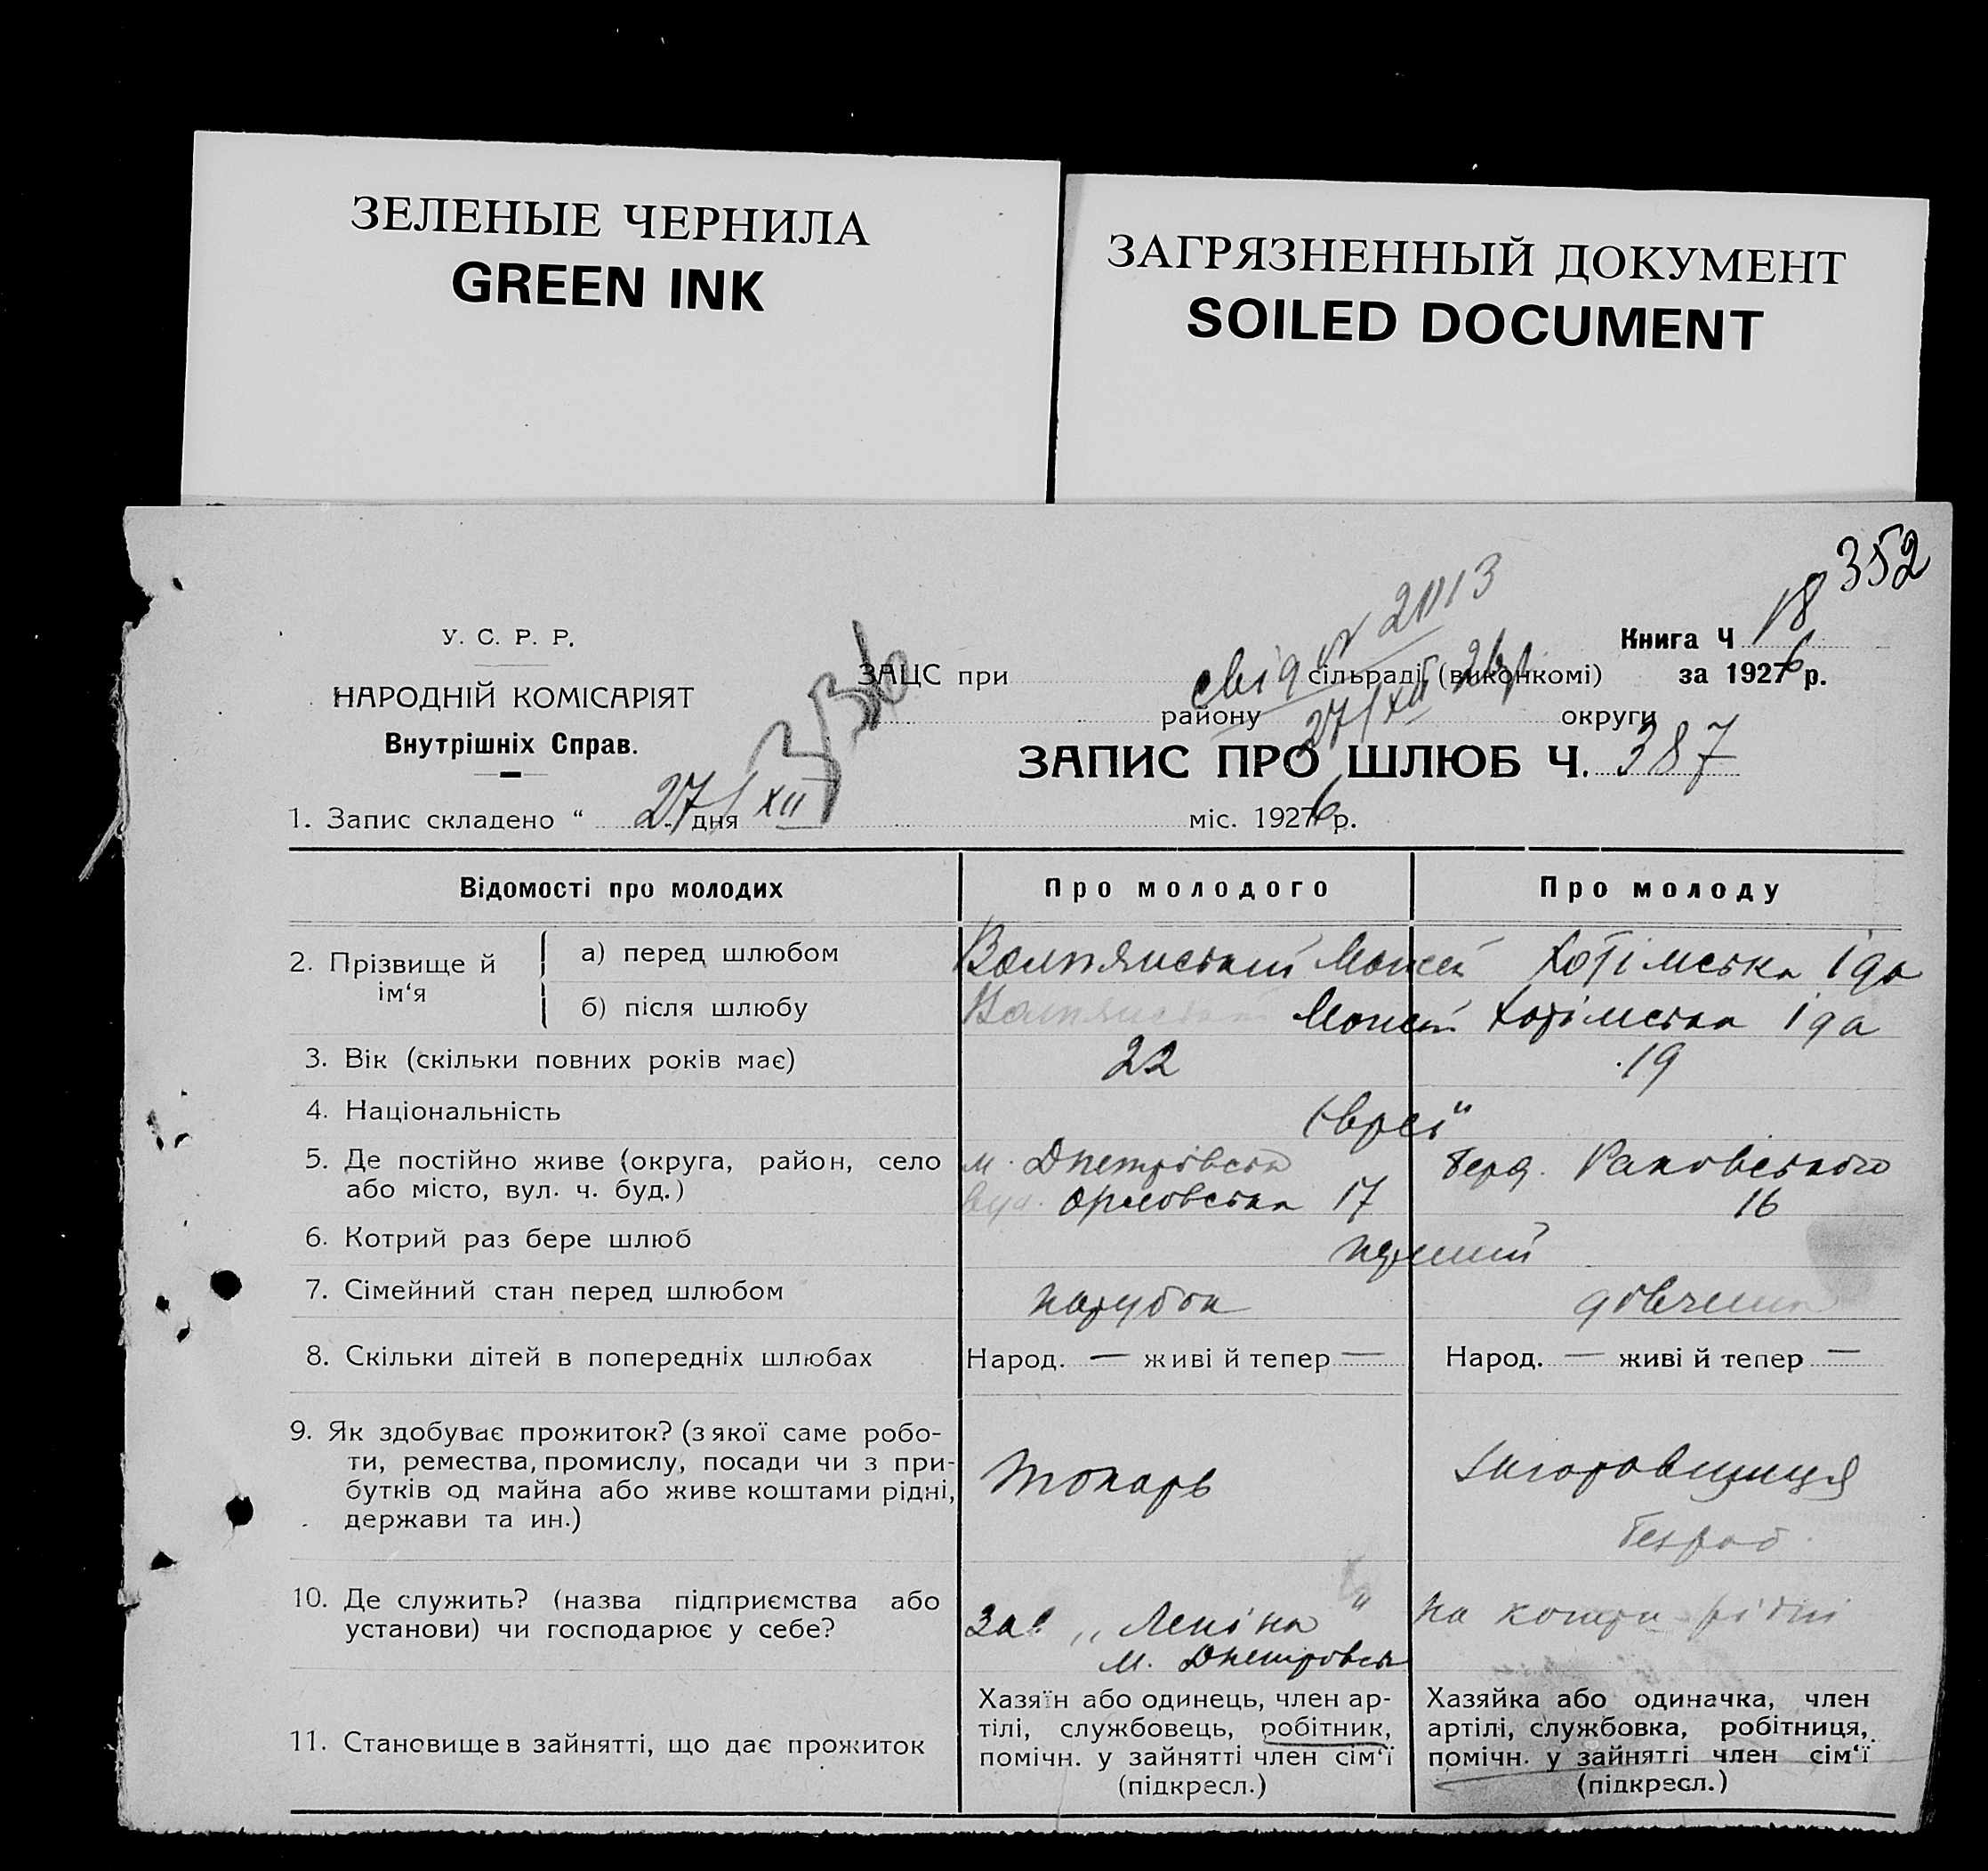 ЗЕЛЕНЫЕ ЧЕРНИЛА
GREEN INK
ЗАГРЯЗНЕННЫЙ ДОКУМЕНТ
SOILED DOCUMENT
352
21113
У. С. Р. Р.
Книга Ч 18
ЗАЦС при сільраді (виконкомі) за 1927 6 р.
свід
НАРОДНІЙ КОМІСАРІЯТ
району 27/XII 26 округи
Внутрішніх Справ.
ЗАПИС ПРО ШЛЮБ Ч. 387
1. Запис складено “ 27/ дня XII міс. 1927 6 р.
Відомості про молодих Про молодого Про молоду
2. Прізвище й ім‘я
а) перед шлюбом Мойсей Хотімська Іда
б) після шлюбу Мойсей Хотімська Іда
3. Вік (скільки повних років має) 22 19
4. Національність Євреї
5. Де постійно живе (округа, район, село м. Днетрівськ Раковського
або місто, вул. ч. буд.) вул. Орловська 17 16
6. Котрий раз бере шлюб перший
7. Сімейний стан перед шлюбом парубок дівчина
8. Скільки дітей в попередніх шлюбах Народ. — живі й тепер — Народ. — живі й тепер —
9. Як здобуває прожиток? (з якої саме робо-
ти, ремества, промислу, посади чи з при-
бутків од майна або живе коштами рідні, токарь
держави та ин.) безроб.
10. Де служить? (назва підприємства або на кошти рідні
установи) чи господарює у себе? Зав. „Леніна“
м. Днетровськ
11. Становище в зайнятті, що дає прожиток
Хазяїн або одинець, член ар-
тілі, службовець, робітник,
помічн. у зайнятті член сім‘ї
(підкресл.)
Хазяйка або одиначка, член
артілі, службовка, робітниця,
помічн. у зайнятті член сім‘ї
(підкресл.)